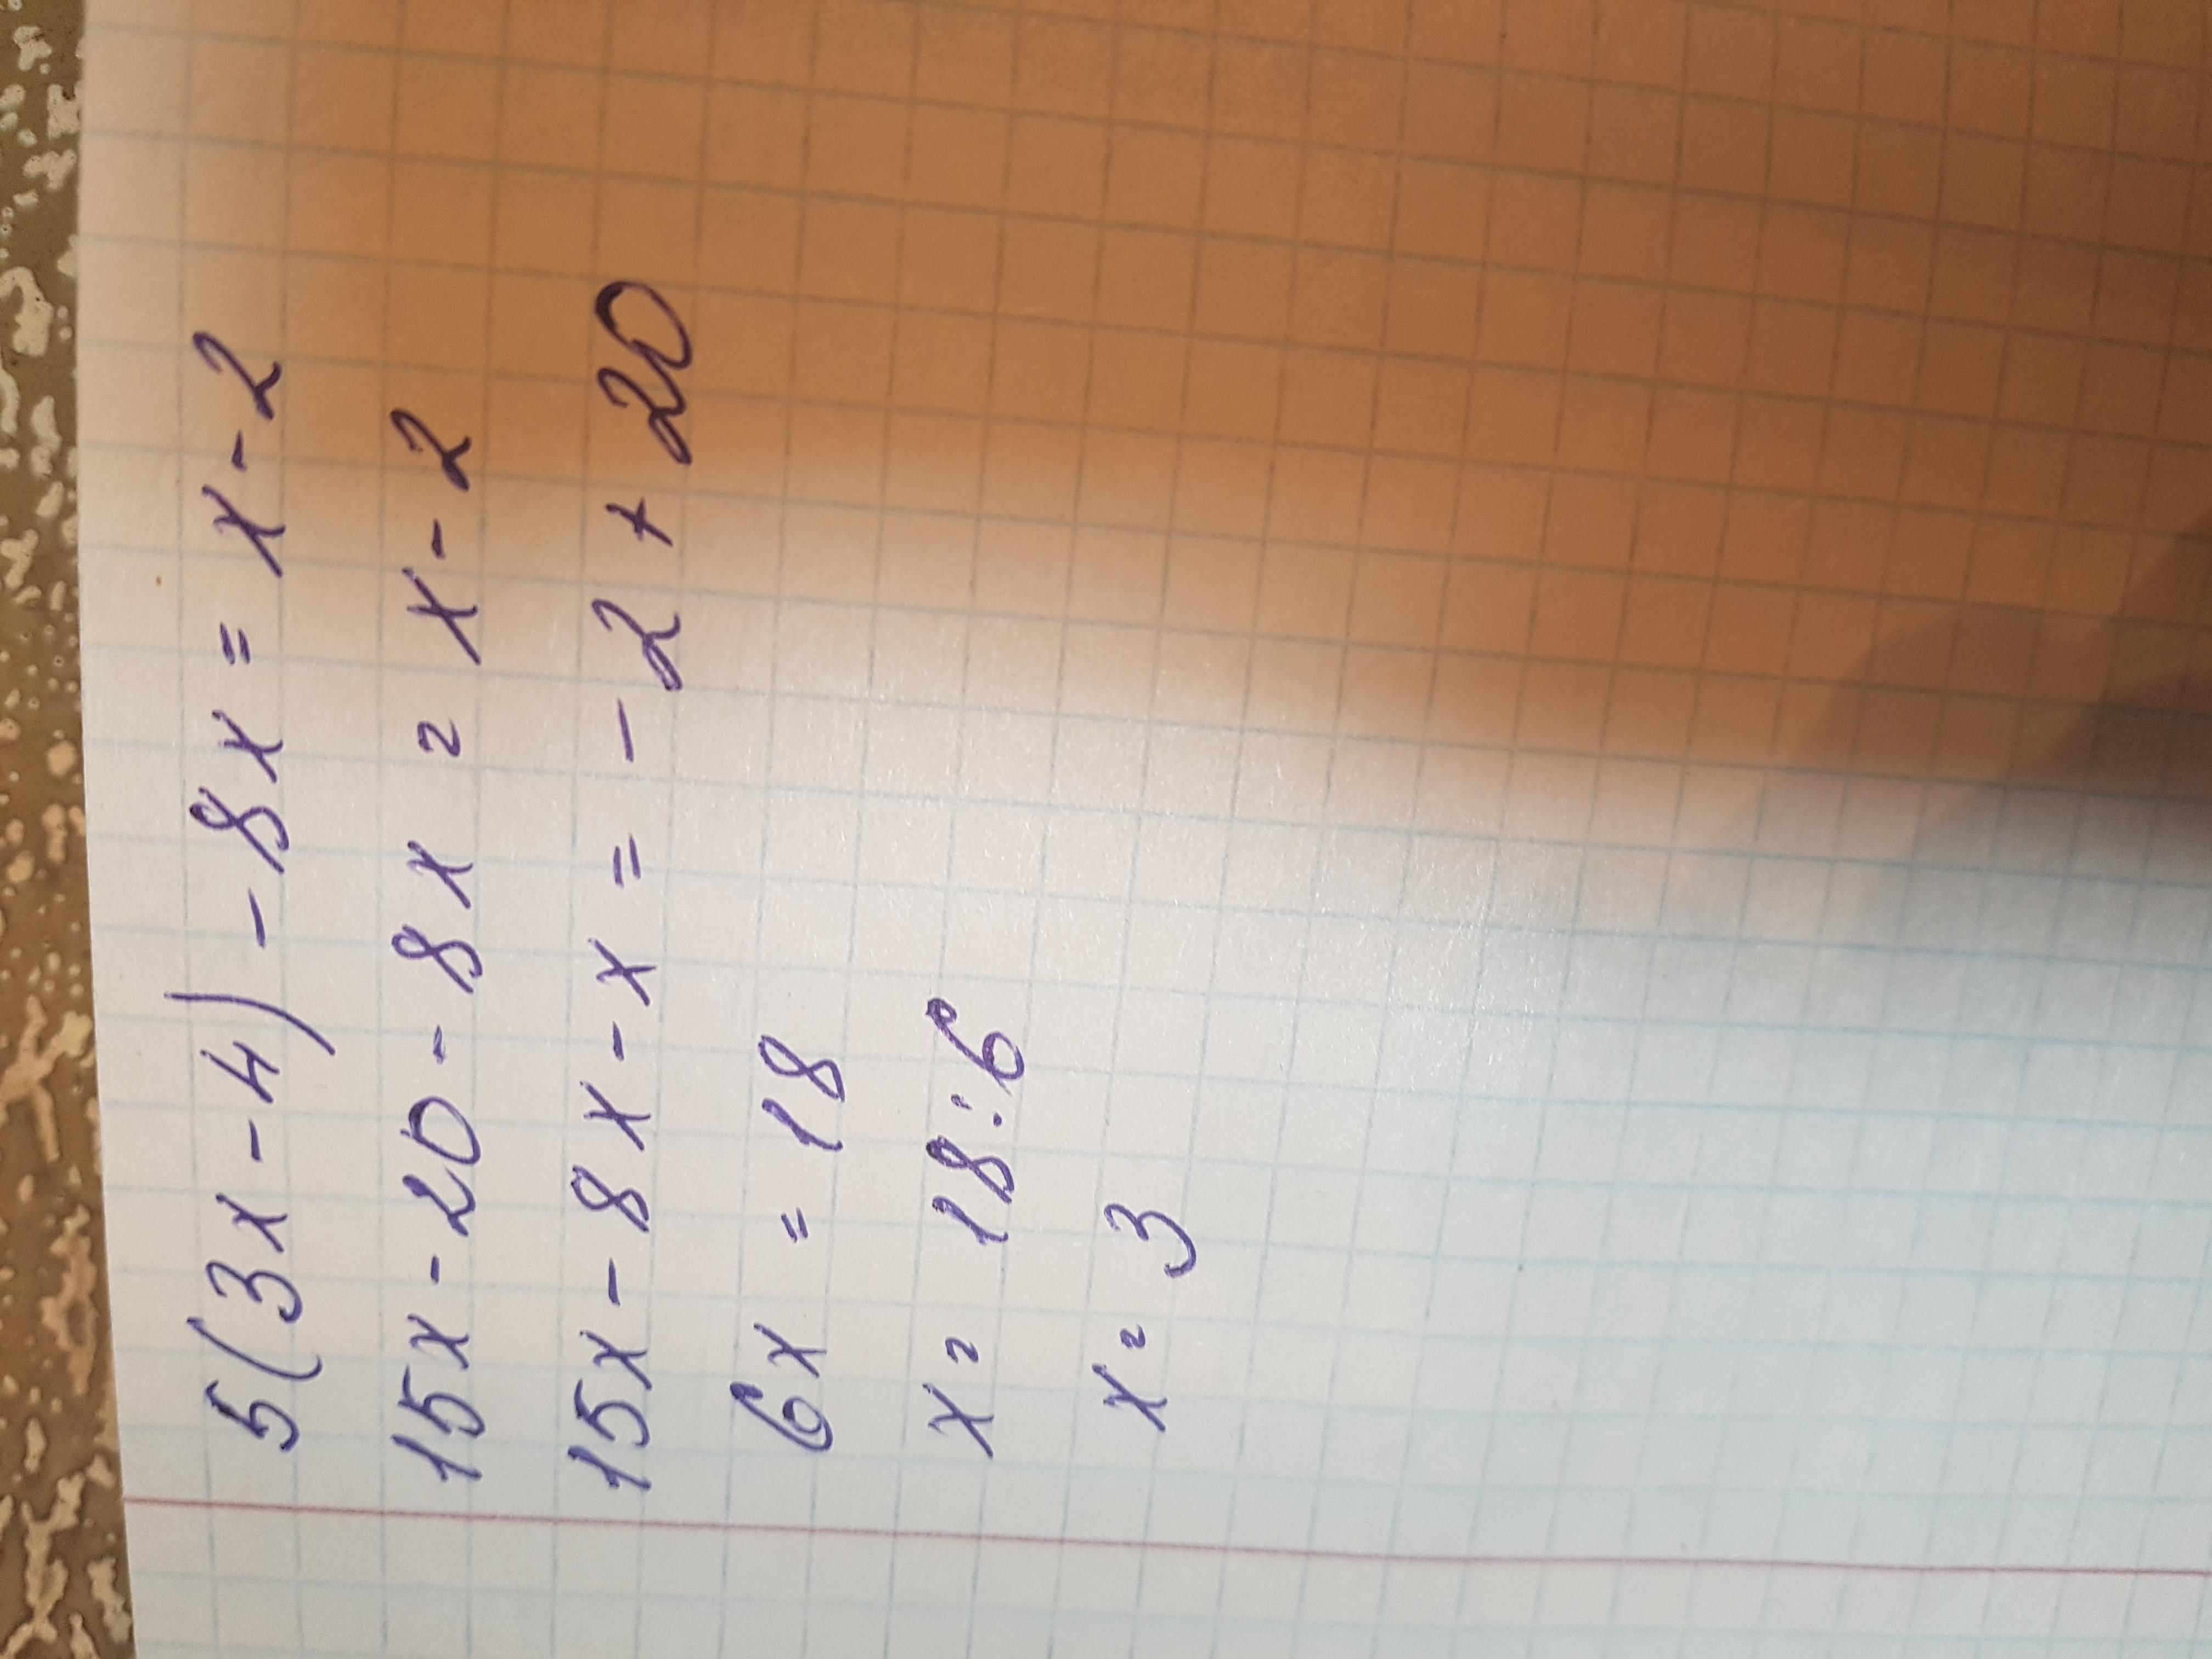 5(3x-4)-8x=x-2
15x-20-8x=x-2
15x-8x-x=-2+20
6x=18
x=18:6
x=3